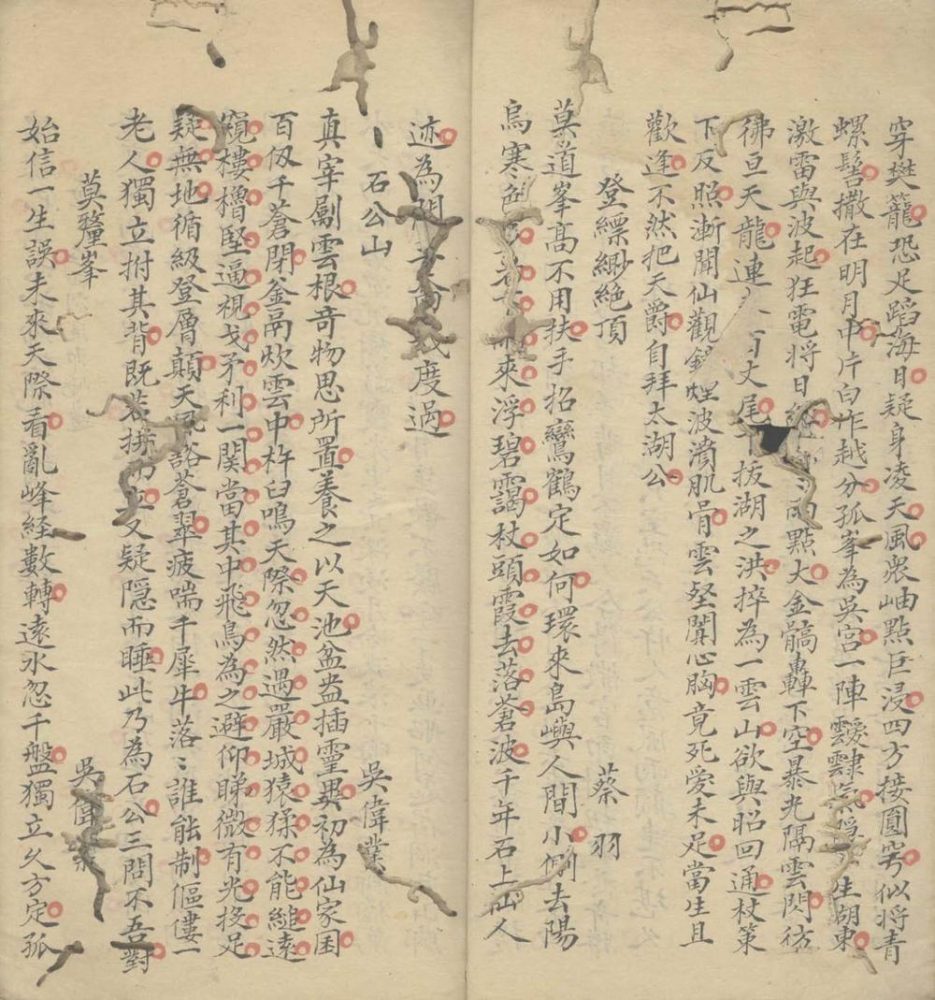 穿樊籠恐足蹈海日疑身凌天風眾岫點巨浸四方接圓穹似將青
螺髻撒在明月中片白作越分孤峯為吳宮一陣靉靆氣 生湖東
激雷與波起狂電將日 雨點大金髇轟下空暴光隔雲閃彷
彿亘天龍連 百丈尾 拔湖之洪捽為一雲山欲與昭回通杖策
下反照漸聞仙觀鐘煙波潰肌骨雲壑闐心胸竟死愛未足當生且
歡逢不然把天爵自拜太湖公
登縹緲絶頂
蔡羽
莫道峯髙不用扶手招鸞鶴定如何環來島嶼人間小倒去陽
烏寒色 來浮碧靄杖頭霞去落蒼波千年石上仙人
迹為問 度過
石公山
吳偉業
真宰劚雲根奇物思所置養之以天池盆盎插靈異初為仙家囷
百仭千蒼閉釡鬲炊雲中杵臼鳴天際忽然遇嚴城猿猱不能縋遠
窺樓櫓堅逼視戈矛利一関當其中飛鳥為之避仰睇微有光投足
疑無地循級登層顛天風豁蒼翠疲喘千犀牛落〻誰能制傴僂一
老人獨立拊其背既若拱而 又疑隠而睡此乃為石公三問不吾對
莫釐峯
吳偉業
始信一生誤未來天際看亂峰経數轉遠水忽千盤獨立久方定孤